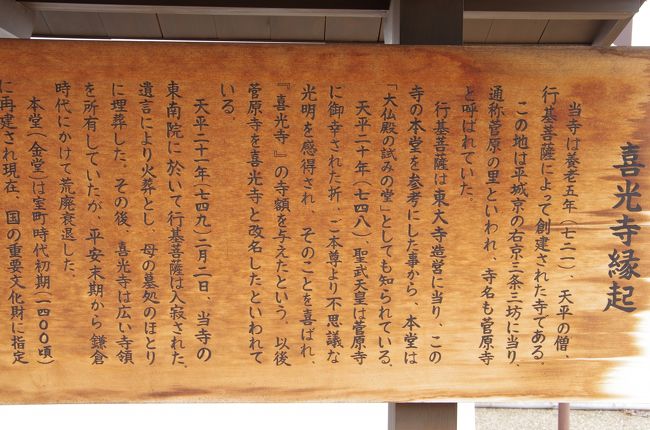 喜光寺縁起
当寺は養老五年(七二一)、天平の僧、
行基菩薩によって創建された寺である。
この地は平城京の右京三条三坊に当り、
通称菅原の里といわれ、寺名も菅原寺
と呼ばれていた。
行基菩薩は東大寺造営に当り、この
寺の本堂を参考にした事から、本堂は
「大仏殿の試みの堂」としても知られている。
天平二十年(七四八)、聖武天皇は菅原寺
に御幸された折、ご本尊より不思議な
光明を感得され、そのことを喜ばれ、
『喜光寺』の寺額を与えたという。以後
菅原寺を喜光寺と改名したといわれて
いる。
天平二十一年(七四九)二月二日、当寺の
東南院に於いて行基菩薩は入寂された。
遺言により火葬とし、母の墓処のほとり
に埋葬した。その後、喜光寺は広い寺領
を所有していたが、平安末期から鎌倉
時代にかけて荒廃衰退した。
本堂(金堂)は室町時代初期(一四〇〇頃)
に再建され現在、国の重要文化財に指定